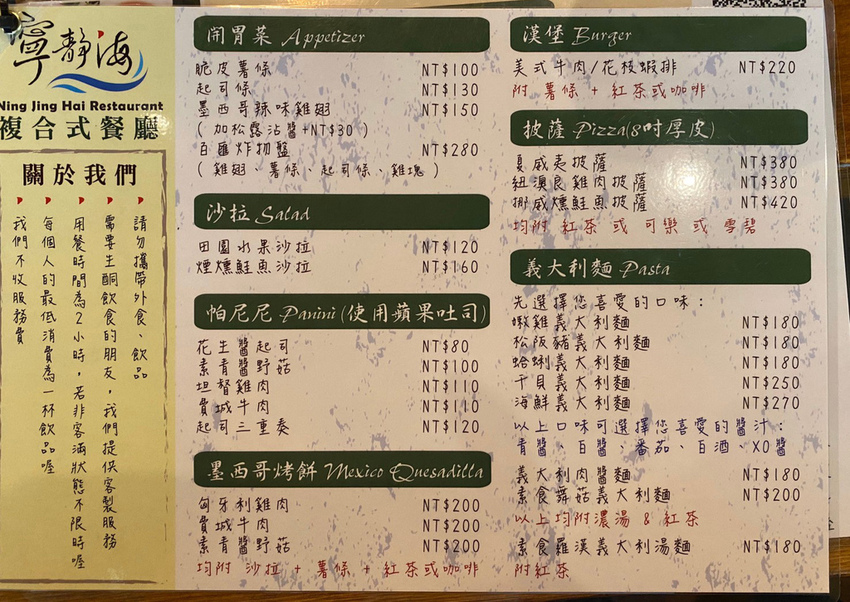 寧靜海
Ning Jing Hai Restaurant
複合式餐廳
關於我們
請勿攜帶外食、飲品
需要生酮飲食的朋友，我們提供客製服務
用餐時間為2小時，若非客滿狀態不限時喔
每個人的最低消費為一杯飲品喔
我們不收服務費
開胃菜 Appetizer
脆皮薯條 NT$100
起司條 NT$130
墨西哥辣味雞翅 NT$150
(加松露沾醬+NT$30)
百匯炸物盤 NT$280
(雞翅、薯條、起司條、雞塊)
沙拉 Salad
田園水果沙拉 NT$120
煙燻鮭魚沙拉 NT$160
帕尼尼 Panini (使用蘋果吐司)
花生醬起司 NT$80
素青醬野菇 NT$100
坦督雞肉 NT$110
費城牛肉 NT$110
起司三重奏 NT$120
墨西哥烤餅 Mexico Quesadilla
匈牙利雞肉 NT$200
費城牛肉 NT$200
素青醬野菇 NT$200
均附 沙拉 + 薯條 + 紅茶或咖啡
漢堡 Burger
美式牛肉/花枝蝦排 NT$220
附 薯條 + 紅茶或咖啡
披薩 Pizza(8吋厚皮)
夏威夷披薩 NT$380
紐澳良雞肉披薩 NT$380
挪威燻鮭魚披薩 NT$420
均附 紅茶 或 可樂 或 雪碧
義大利麵 Pasta
先選擇您喜愛的口味：
嫩雞義大利麵 NT$180
松阪豬義大利麵 NT$180
蛤蜊義大利麵 NT$180
干貝義大利麵 NT$250
海鮮義大利麵 NT$270
以上口味可選擇您喜愛的醬汁：
青醬、白醬、番茄、白酒、XO醬
義大利肉醬麵 NT$180
素食舞菇義大利麵 NT$200
以上均附濃湯 & 紅茶
素食羅漢義大利湯麵 NT$180
附紅茶